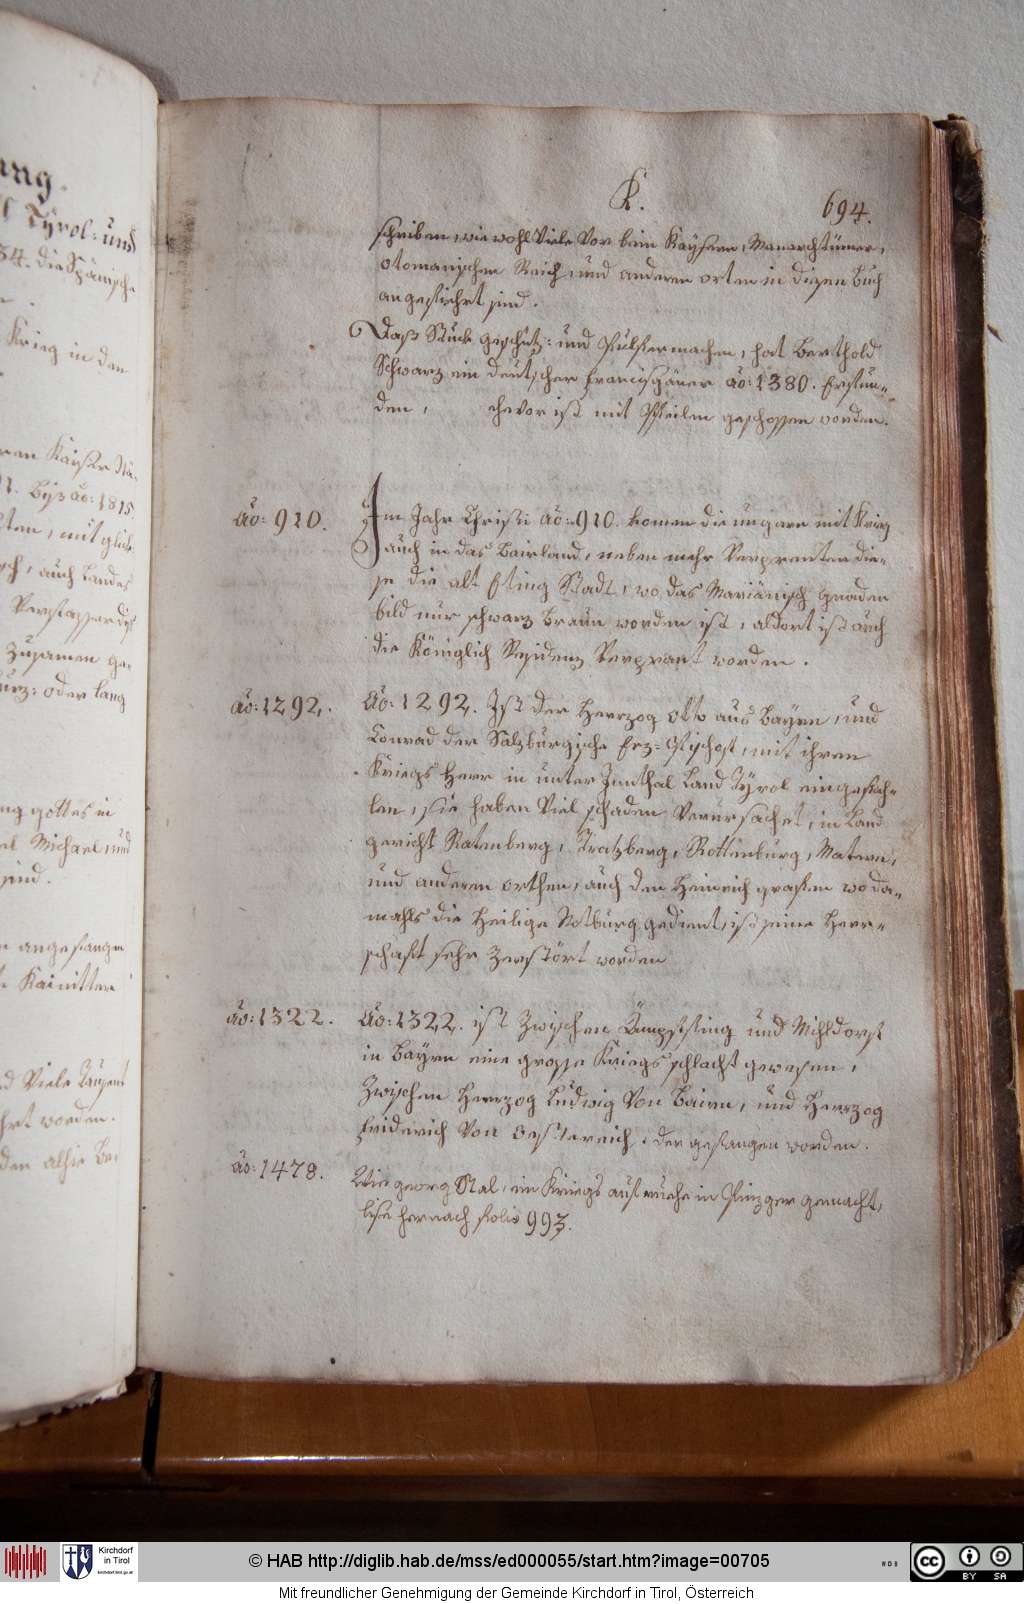 ung.
Tÿrol: und
34. die Spänisch
Krieg in den
ren Kaÿser Na-
biß ao: 1815.
ten, mit glick
auch Landes
zusamen ge-
kurz: oder lang
ung gottes in
el Michael und
sind.
angefangen
Kainitten
nd Viele Tausent
hrt worden.
den alhie be-
K. 694.
schriben, wie wohl Viele Vor beim Kaÿseren, Monarchtümer,
otomanischen Reich, und anderen orten in disen buch
angefiehrt sind.
Daß Stuck geschütz: und Pulfermachen, hat Berthold
Schwarz ein deutscher franciscaner ao: 1380. Erfun-
den, ehevor ist mit Pfeilen geschossen worden.
ao: 910. Im Jahr Christi ao: 910. komen die ungarn mit krieg
auch in das Bairland, neben mehr Verprenten die-
se die alt Eting Stadt, wo das Mariänisch gnaden
bild nur schwarz braun worden ist, aldort ist auch
die Königlich Residenz Verprant worden.
ao: 1292. Ao: 1292. Ist der Herrzog otto aus Baÿrn, und
Conrad der Salzburgische Erz=Bischoff, mit ihren
Kriegs Herr in unter Innthal Land Tÿrol eingefal-
len, sie haben Viel schaden Verursachet, in Land
gericht Ratenberg, Tratzberg, Rottenburg, Matern,
und anderen orthen, auch den Heinrich grafen wo da-
mahls die Heilige Notburg gedient, ist seine Herr-
schaft sehr Zerstört worden
ao: 1322. Ao: 1322. ist Zwischen Ampfsting und Mihldorf
in Baÿrn eine grosse Kriegs schlacht gewesen,
Zwischen Herrzog Ludwig Von Bairn, und Herrzog
friderich Von Oesstereich, der gefangen worden.
ao: 1478. Wie georg Stal, ein Kriegs aufruehr in Pinzger gemacht,
lise hernach folio 993.
Kirchdorf
in Tirol
kirchdorf.tirol.gv.at
© HAB http://diglib.hab.de/mss/ed000055/start.htm?image=00705
WDB
cc BY SA
Mit freundlicher Genehmigung der Gemeinde Kirchdorf in Tirol, Österreich